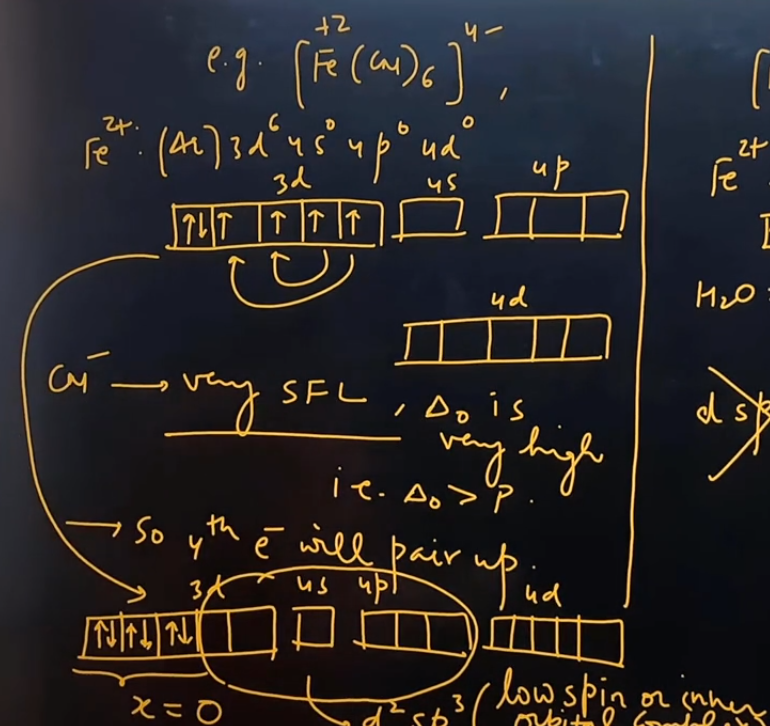 e.g. [Fe(CN)6]4-,
+2
Fe2+: (Ar) 3d6 4s0 4p0 4d0
3d 4s 4p
↑↓ ↑ ↑ ↑ ↑
4d
CN- → very SFL, Δo is
very high
i.e. Δo > P.
→ So 4th e- will pair up.
3d 4s 4p 4d
↑↓ ↑↓ ↑↓
x = 0
d2sp3 (low spin or inner
orbital
[
Fe2+
H2O
d sp